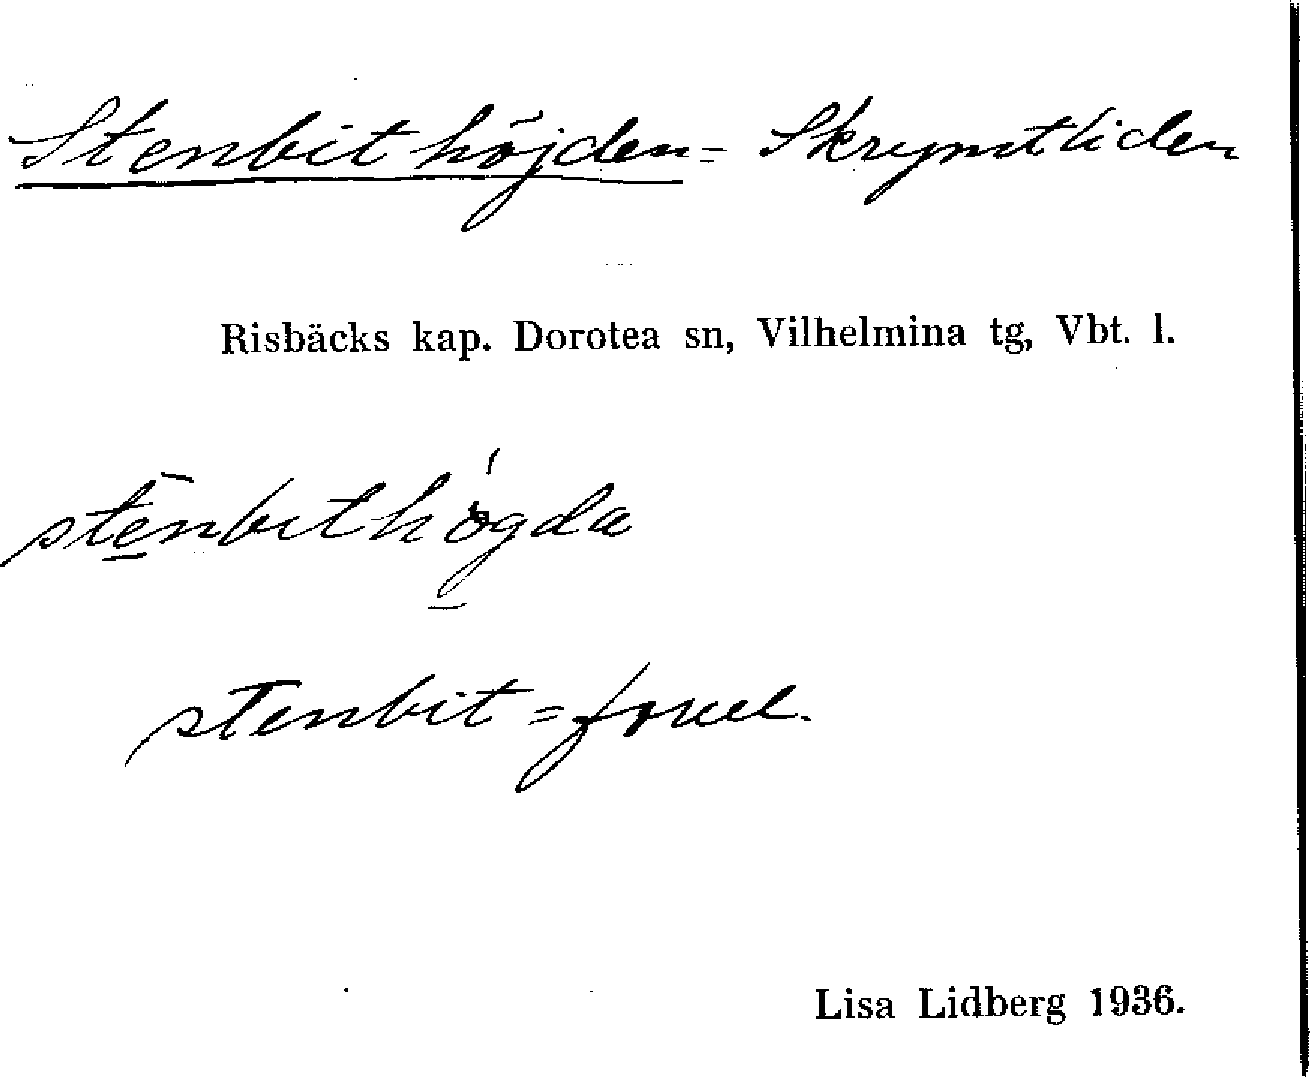 Stenbithöjden = Skrymtliden
Risbäcks kap. Dorotea sn, Vilhelmina tg, Vbt. l.
stēnbithögda
stenbit =
Lisa Lidberg 1936.